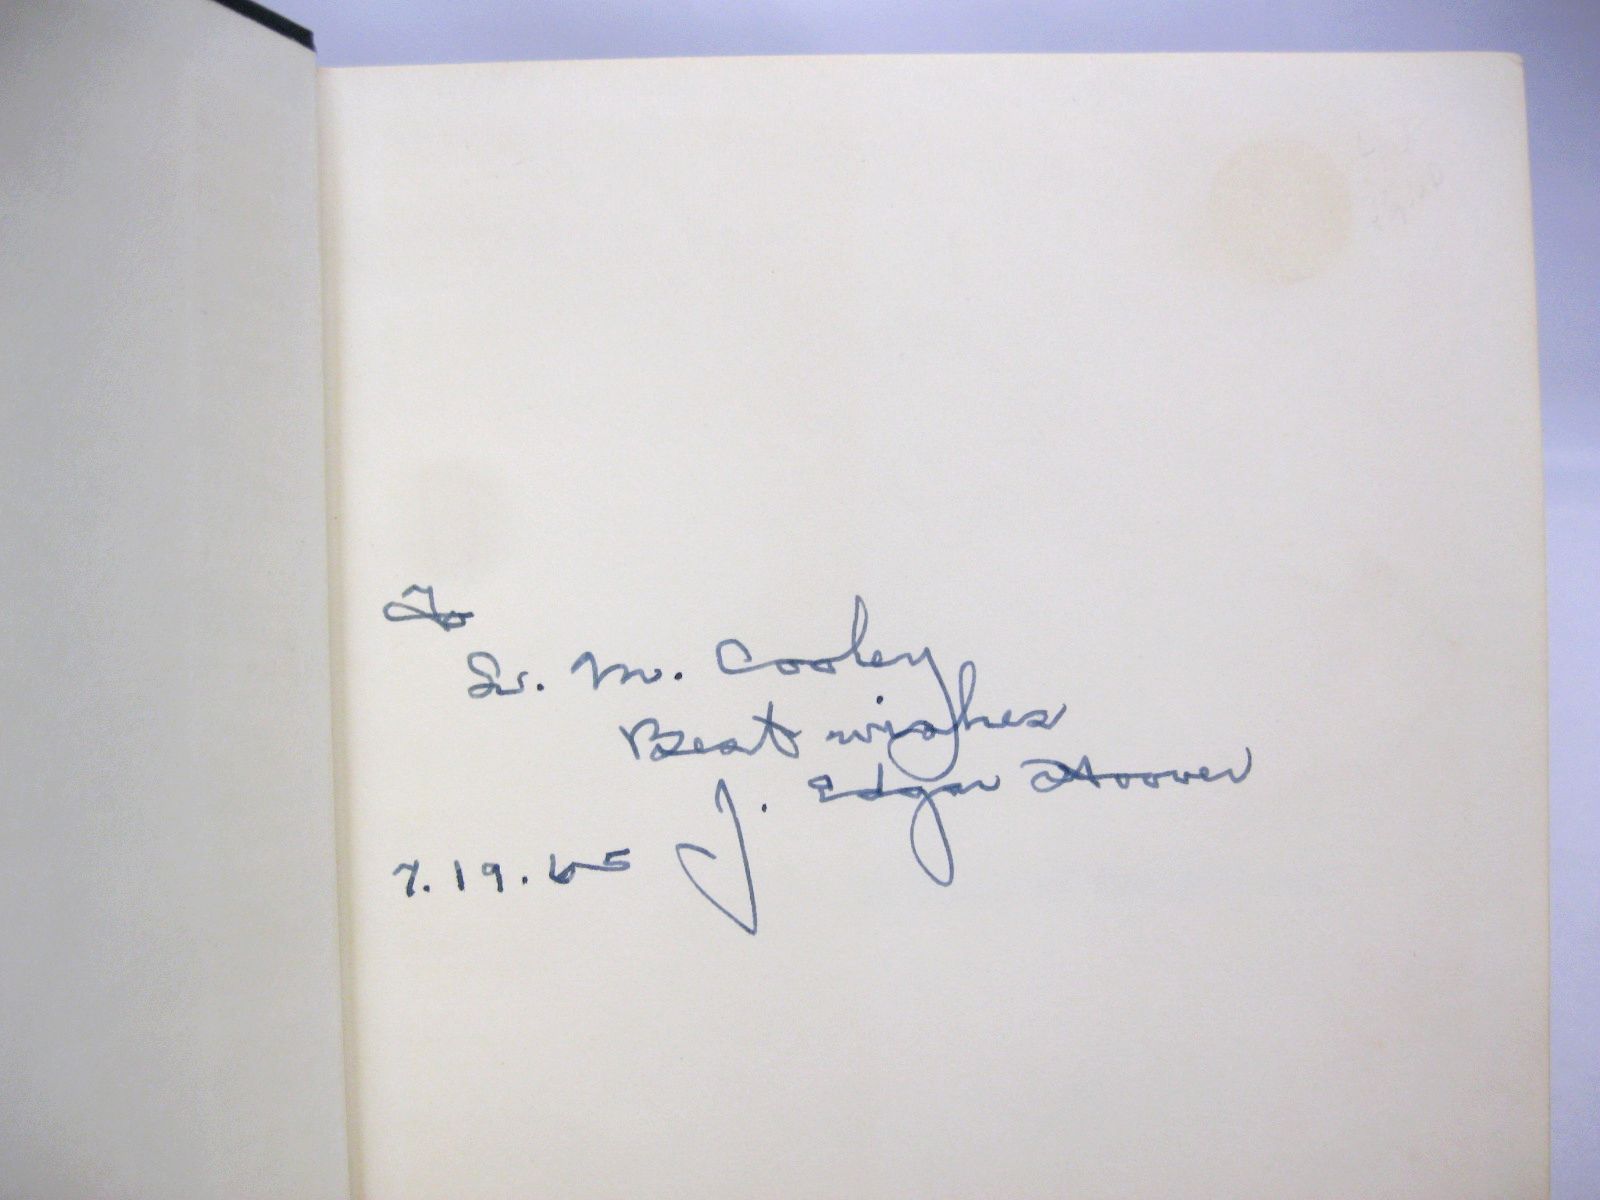 To
M. Cooley
Best wishes
J. Edgar Hoover
7.19.65